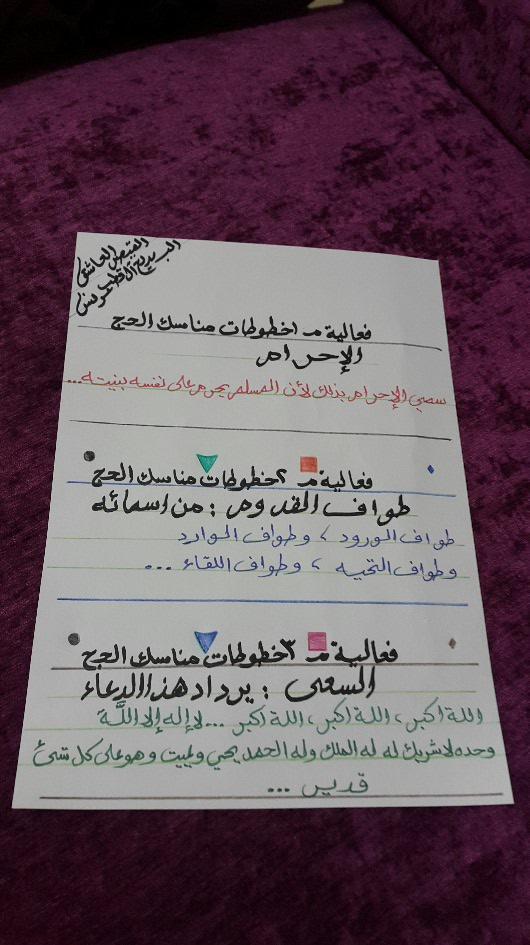 فعالية م ١ خطوطات مناسك الحج
الإحرام
سمي الإحرام بذلك لأن المسلم يحرم على نفسه بنيته...
فعالية م ٢ خطوطات مناسك الحج
طواف القدوم : من اسمائه
طواف الورود ، وطواف الوارد
وطواف التحيه ، وطواف اللقاء ...
فعالية م ٣ خطوطات مناسك الحج
السعى : يردد هذا الدعاء
الله اكبر ، الله اكبر ، الله اكبر ... لا إله إلا اللَّه
وحده لا شريك له له الملك وله الحمد يحي ويميت وهو على كل شئ
قدير ...